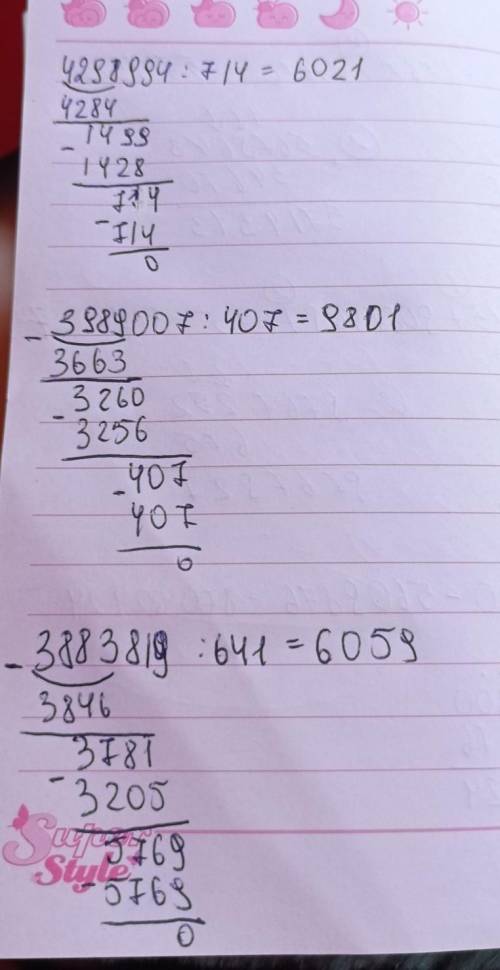 4298994 : 714 = 6021
4284
- 1499
1428
714
- 714
0
- 3989007 : 407 = 9801
3663
- 3260
3256
- 407
407
0
- 3883819 : 641 = 6059
3846
3781
- 3205
5769
- 5769
0
Super
Style